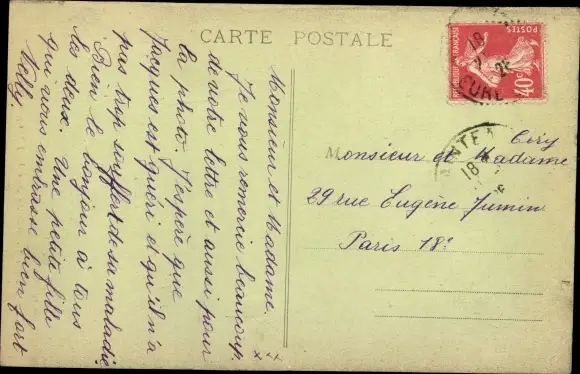 CARTE POSTALE
Monsieur et Madame.
Je vous remercie beaucoup,
de votre lettre et aussi pour
la photo. J'espère que
Jacques est guéri et qu'il n'a
pas trop souffert de sa maladie
Bien le bonjour à tous
les deux. Une petite fille
qui vous embrasse bien fort
Nelly
REPUBLIQUE FRANÇAISE
POSTES
40c
18
CURE
18
Monsieur et Madame
29 rue Eugène Jumin
Paris 18e